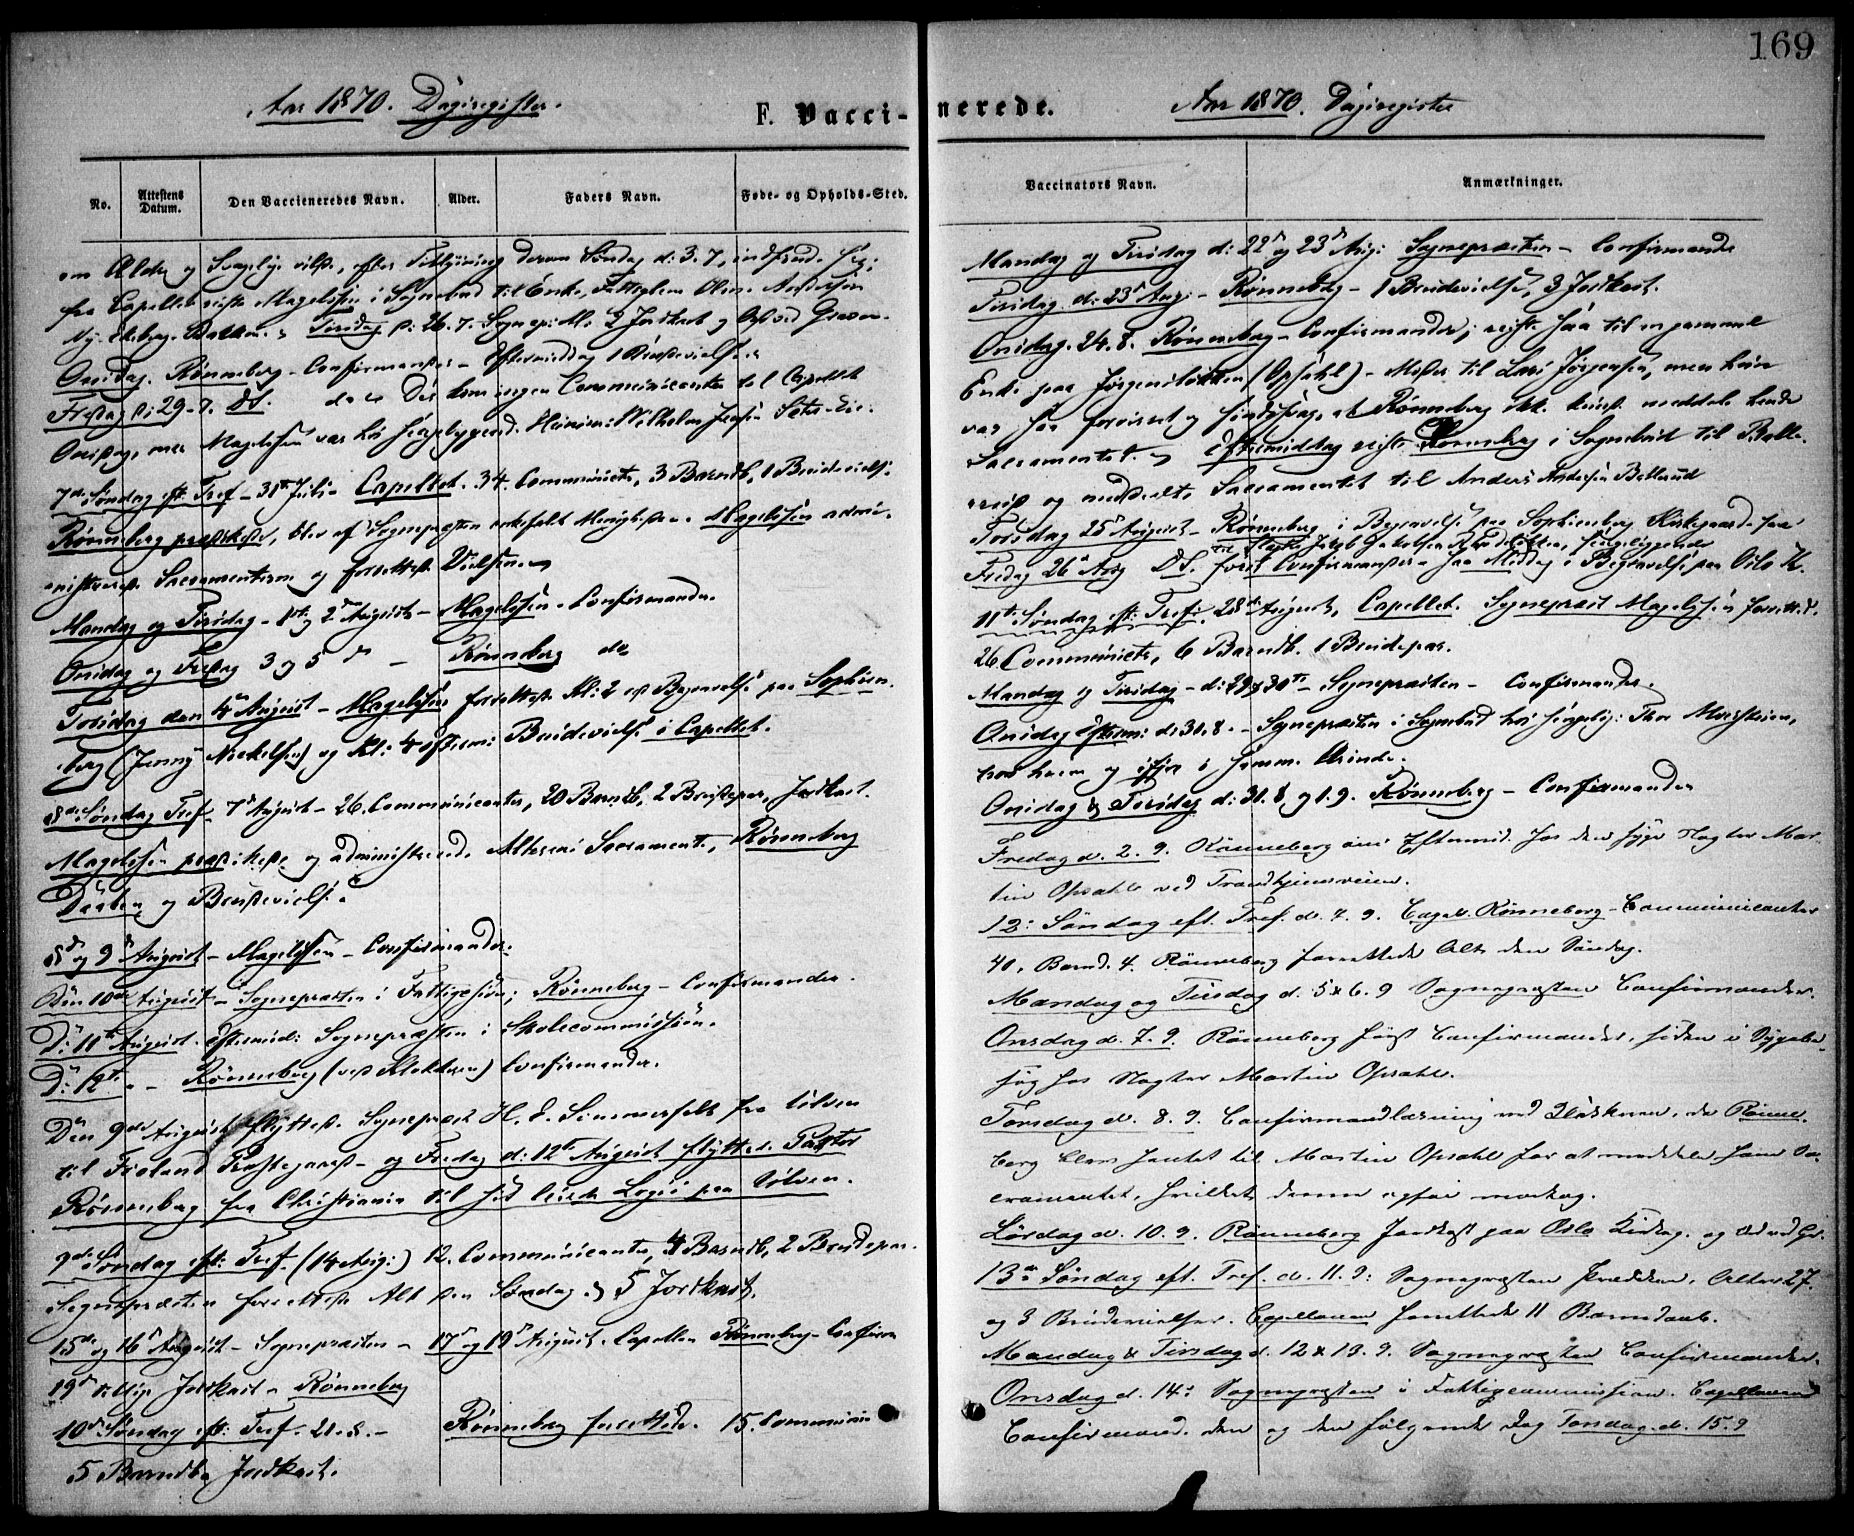 169
Aar 1870. Dagsregister.
F. Vacci-
nerede.
Aar 1870. Dagsregister
No.
Attestens Datum.
Den Vaccieneredes Navn.
Alder.
Faders Navn.
Føde- og Opholds-Sted.
om Alder og Svagelig derom Søndag d: 3. 7,
fra Capellet reiste Magelssen i Sognebud til Enke, Olsen
Tirsdag d: 26. 7. 2 Jordkast og
Onsdag. Rønneberg - Confirmander - Eftermiddag 1 Brudevielse
Fredag d: 29. 7. do. do Der kom ingen Communicanter til Capellet
Onsdag, men Magelssen var hos Wilhelm
7de Søndag eft: Tref - 31te Juli - Capellet. 34. Communicts, 3 Barnedb, 1 Brudeviels:
Rønneberg prædikede, blev af Sognepræsten anbefalet Menigheden. Magelssen admi-
nistrerede Sacramenterne og forrettede Vielsen
Mandag og Tirsdag - 1ste og 2den August - Magelssen - Confirmander.
Onsdag og Fredag 3 og 5 - Rønneberg do
Torsdag den 4de August - Magelssen forrettede Kl: 2 ved Begravelse paa Sophien-
berg (Jenny Nickelsen) og Kl: 4 Efterm: Brudevielse i Capellet.
8de Søndag Tref 7de August - 26. Communicanter, 20 Barnedb, 2 Brudepar, Jordkast.
Magelssen prædikede og administrerede Alterens Sacramente, Rønneberg
Daaben og Brudevielse
8de og 9de August - Magelssen - Confirmander:
Den 10de August - Sognepræsten i Rønneberg - Confirmander.
D: 11te August. Eftermid: Sognepræsten i Skolecommission.
D: 12te - Rønneberg (ved Klokkeren) Confirmander.
Den 9de August flyttede Sognepræst H. E. Simmerfelt fra Ulven
til Froland Præstegaard - og Fredag d: 12te August flyttede Pastor
Rønneberg fra Christiania til sit leiede Logis paa Ulven.
9de Søndag eft: Tref. (14 Aug:) 12. Communicanter, 4 Barnedb, 2 Brudepar.
Sognepræsten forrettede Alt den Søndag. 5 Jordkast,
15de og 16de August - Sognepræsten - 17de og 18de August - Capellan Rønneberg - Confirm
19de Aug: Jordkast - Rønneberg
10de Søndag eft: Tref. 21. 8. - Rønneberg forrettede. 15. Communic
5 Barnedb, Jordkast.
Vaccinators Navn.
Anmærkninger.
Mandag og Tirsdag d: 22de og 23de Aug: Sognepræsten - Confirmander
Tirsdag d: 23de Aug: - Rønneberg - 1 Brudevielse, 3 Jordkast.
Onsdag. 24. 8. Rønneberg - Confirmander, reiste saa til en gammel
Enke paa (Opsahl) - Moder til Lars Jørgensen, men hun
var saa forvirret og at Rønneberg ikke kunde meddele hende
Sacramentet. Eftermiddag reiste Rønneberg i Sognebud til
og meddelte Sacramentet til Anders Andersen
Torsdag 25de August - Rønneberg i Begravelse paa Sophienberg Kirkegaard - saa
til
Fredag 26de Aug Do. først Confirmander - saa Middag i Begravelse paa Oslo K.
11te Søndag eft: Tref. 28de August, Capellet. Sognepræst Magelssen forrettede.
26. Communicts, 6 Barnedb. 1 Brudepar.
Mandag og Tirsdag - d: 29 og 30te - Sognepræsten - Confirmander.
Onsdag Efterm: d: 31. 8. - Sognepræsten i Sognebud hos
Onsdag & Torsdag d: 31. 8. og 1. 9. Rønneberg - Confirmander
Fredag d. 2. 9. Rønneberg om Eftermid. hos den syge Vogter Mar-
tin Opsahl ved Trondhjemsveien.
12: Søndag eft. Tref. d. 4. 9. Capel. Rønneberg - Communicanter
40, Barnd. 4. Rønneberg forrettede Alt den Søndag.
Mandag og Tirsdag d. 5 & 6. 9 Sognepræsten Confirmander.
Onsdag d. 7. 9. Rønneberg først Confirmander, siden i Sygebe-
søg hos Vogter Martin Opsahl.
Torsdag d. 8. 9. Confirmandlæsning ved Klokkeren, da Rønne-
berg blev hentet til Martin Opsahl for at meddele ham Sa-
cramentet, hvilket denne ogsaa modtog.
Lørdag d. 10. 9. Rønneberg Jordkast paa Oslo Kirkeg. og
13de Søndag eft. Tref. d. 11. 9: Sognepræsten Præken, Alters 27.
og 3 Brudevielser. Capellanen forrettede 11 Barnedaab.
Mandag & Tirsdag d. 12 & 13. 9. Sognepræsten Confirmander.
Onsdag d. 14: Sognepræsten i Fattigcommission. Capellanen
Confirmand. den og den følgende Dag Torsdag d. 15. 9